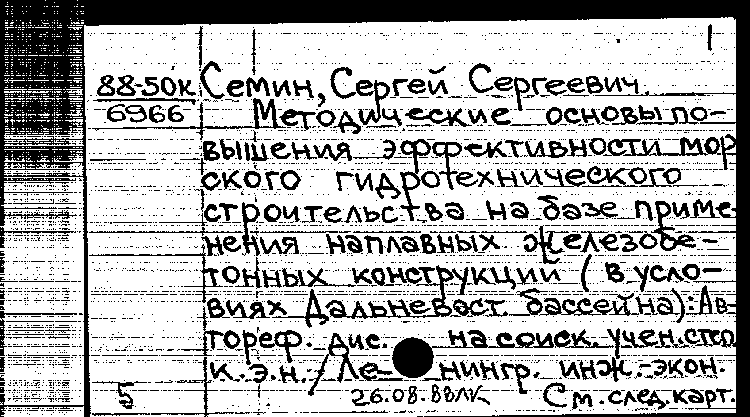 1
88-50к Семин, Сергей Сергеевич.
6966 Методические основы по-
вышения эффективности мор
ского гидротехнического
строительства на базе приме-
нения наплавных железобе-
тонных конструкций (в усло-
виях Дальневост. бассейна): Ав-
тореф. дис. на соиск. учен. степ
к.э.н. / Ле- нингр. инж.-экон.
5 26.08.88ЛК См. след. карт.